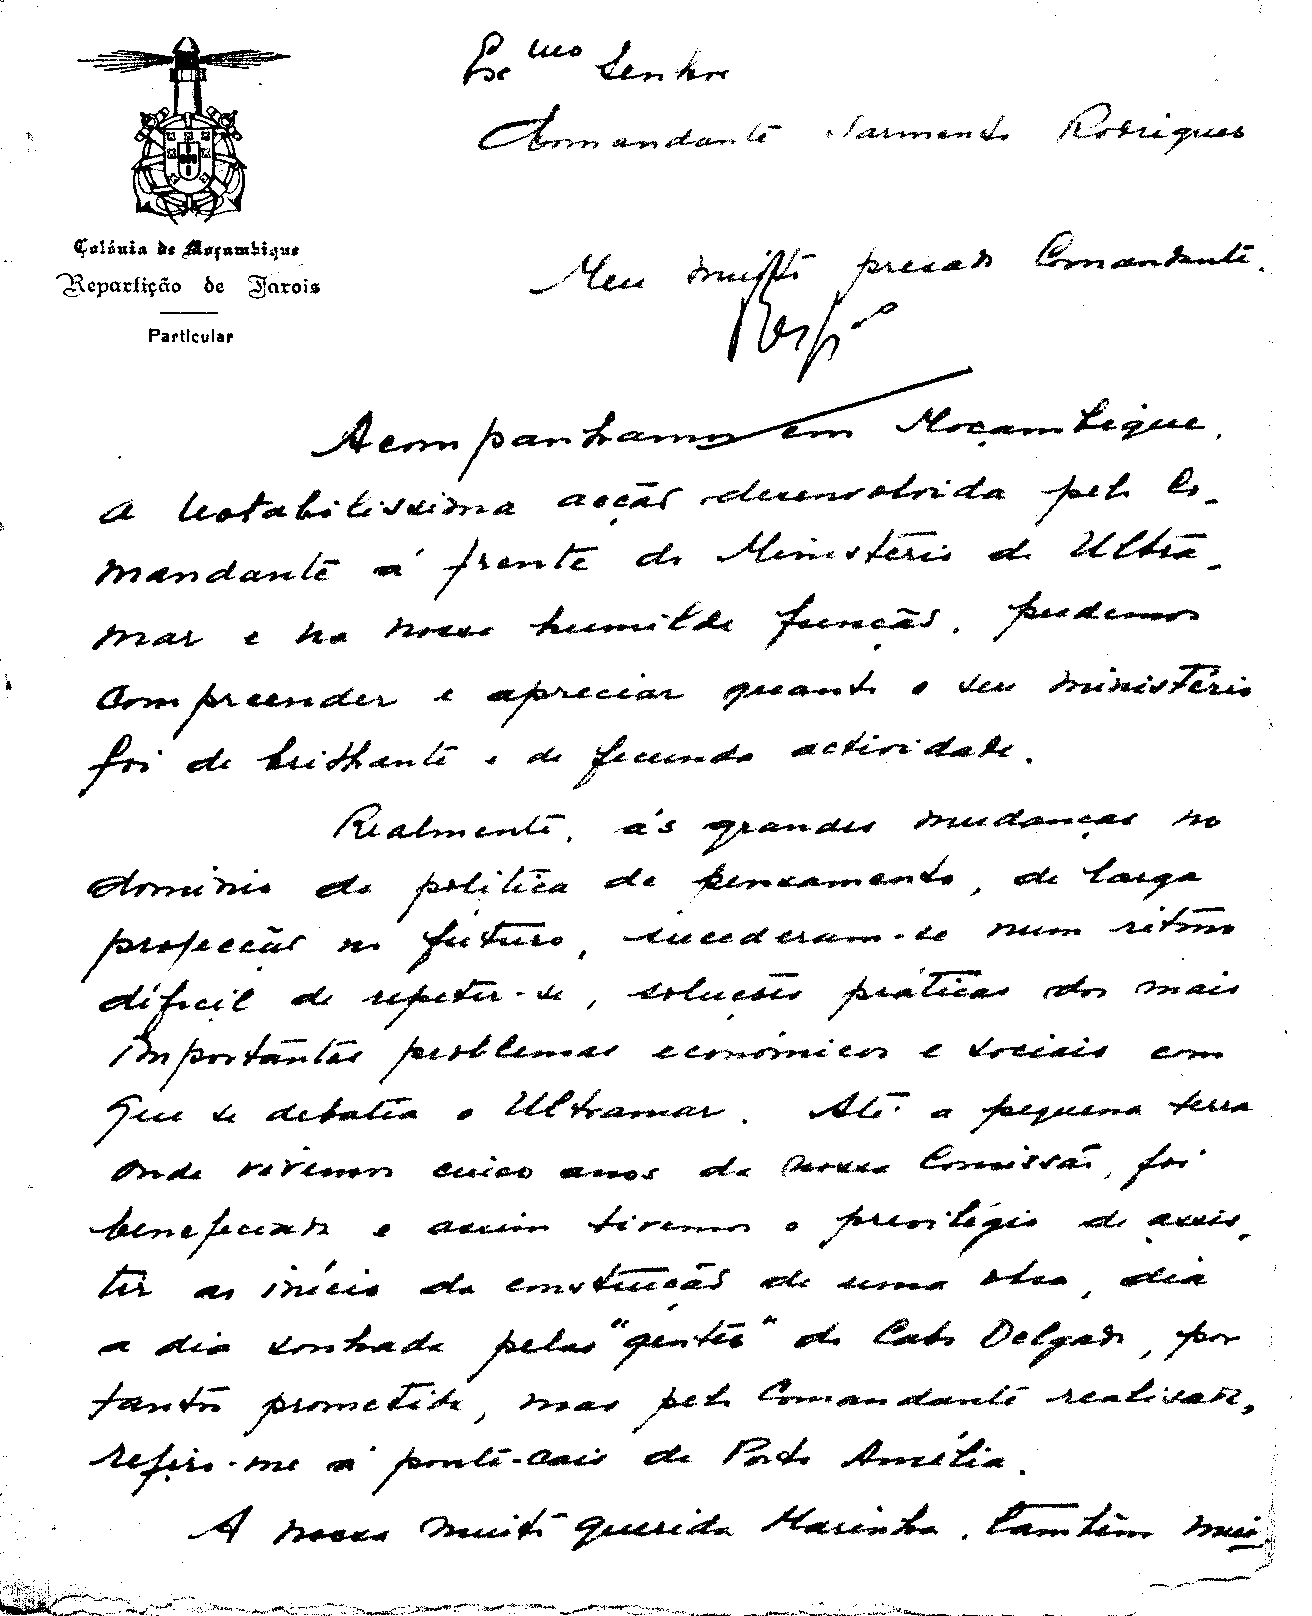 Exmo Senhor
Comandante Sarmento Rodrigues
Colónia de Moçambique
Repartição de Farois
Particular
Meu muito presado Comandante.
Acompanhamos em Moçambique,
a notabilissima acção desenvolvida pelo Co-
mandante á frente do Ministério do Ultra-
mar e na nossa humilde função, pudemos
compreender e apreciar quanto o seu ministério
foi de brilhante e de fecunda actividade.
Realmente, ás grandes mudanças no
dominio da politica de pensamento, de larga
projecção no futuro, sucederam-se num ritmo
dificil de repetir-se, soluções práticas dos mais
importantes problemas económicos e sociais com
que se debatia o Ultramar. Até a pequena terra
onde vivemos cinco anos da nossa Comissão, foi
beneficiada e assim tivemos o previlégio de assis-
tir ao início da constução de uma obra, dia
a dia sonhada pelas "gentes" de Cabo Delgado, por
tantos prometida, mas pelo Comandante realisada,
refiro-me á ponte-cais de Porto Amélia.
A nossa muito querida Marinha, tambêm mui